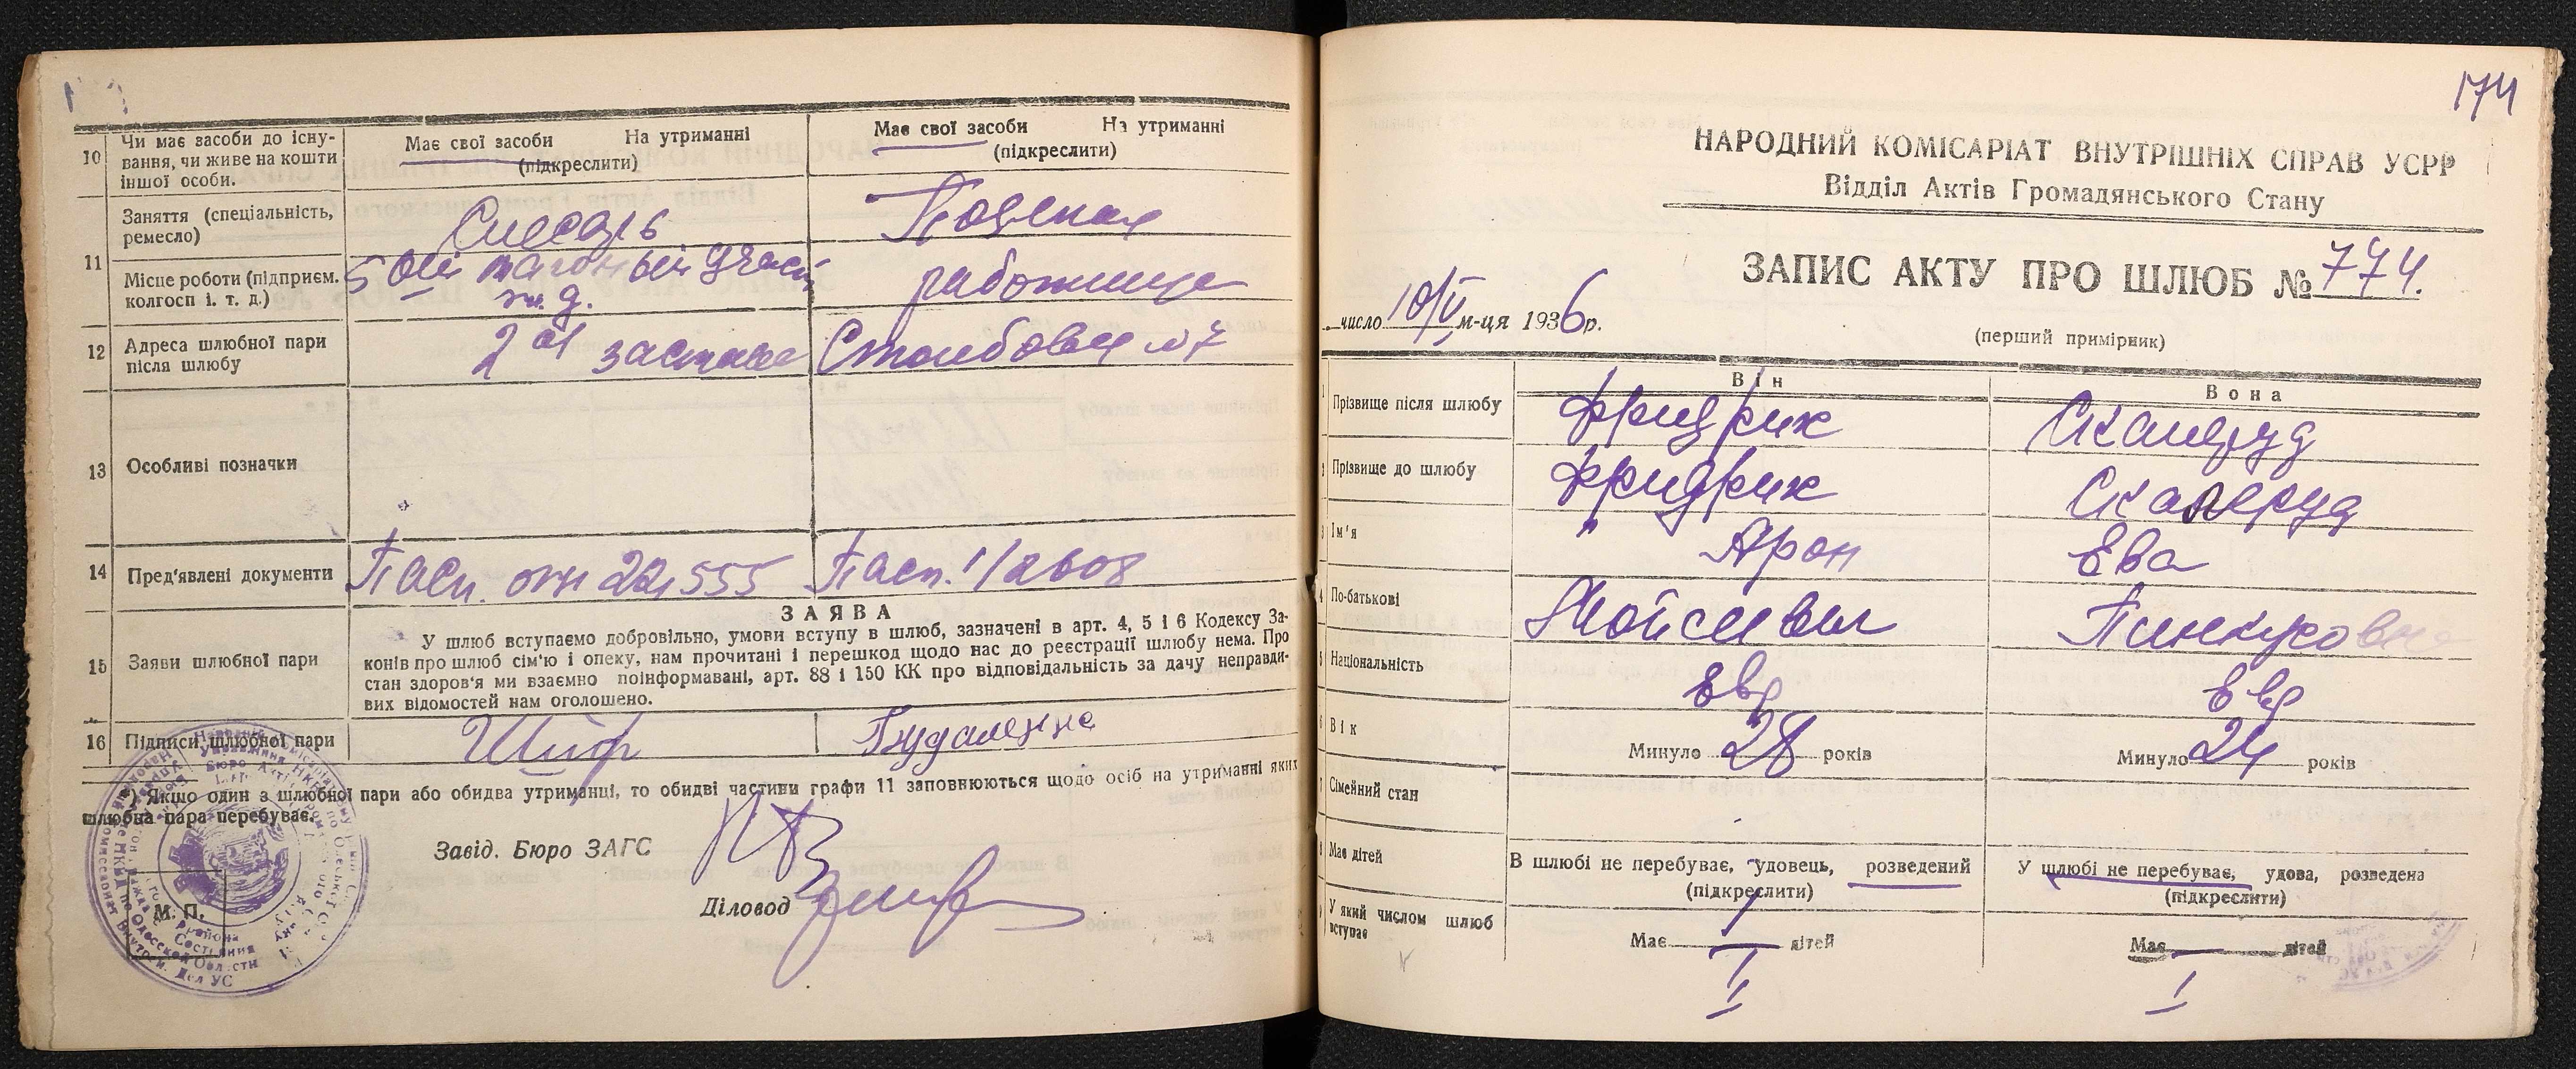 10
Чи має засоби до існу-
вання, чи живе на кошти
іншої особи.
Має свої засоби На утриманні
(підкреслити)
Має свої засоби На утриманні
(підкреслити)
11
Заняття (спеціальність,
ремесло)
Слесарь
Поденная
Місце роботи (підприєм.
колгосп і. т. д.)
5 ый вагонный участ
ж.д.
работница
12
Адреса шлюбної пари
після шлюбу
2 ая застава
Столбовая № 7
13
Особливі позначки
14
Пред'явлені документи
Пасп.
Пасп.
15
Заяви шлюбної пари
ЗАЯВА
У шлюб вступаємо добровільно, умови вступу в шлюб, зазначені в арт. 4, 5 і 6 Кодексу За-
конів про шлюб сім'ю і опеку, нам прочитані і перешкод щодо нас до реєстрації шлюбу нема. Про
стан здоров'я ми взаємно поінформавані, арт. 88 і 150 КК про відповідальність за дачу неправди-
вих відомостей нам оголошено.
16
Підписи шлюбної пари
*) Якщо один з шлюбної пари або обидва утриманці, то обидві частини графи 11 заповнюються щодо осіб на утриманні яких
шлюбна пара перебуває.
Завід. Бюро ЗАГС
Діловод
М. П.
174
НАРОДНИЙ КОМІСАРІАТ ВНУТРІШНІХ СПРАВ УСРР
Відділ Актів Громадянського Стану
ЗАПИС АКТУ ПРО ШЛЮБ № 774.
число 10/V м-ця 1936р.
(перший примірник)
Він
Вона
1
Прізвище після шлюбу
Фридрих
Скалеруд
2
Прізвище до шлюбу
Фридрих
Скалеруд
3
Ім'я
" Арон
Ева
4
По-батькові
Мойсеевич
Пинкусовна
5
Національність
Евр
Евр
6
Вік
Минуло 28 років
Минуло 24 років
7
Сімейний стан
8
Має дітей
В шлюбі не перебуває, удовець, розведений
(підкреслити)
У шлюбі не перебуває, удова, розведена
(підкреслити)
9
У який числом шлюб
вступає
Має дітей
Має дітей
II
I